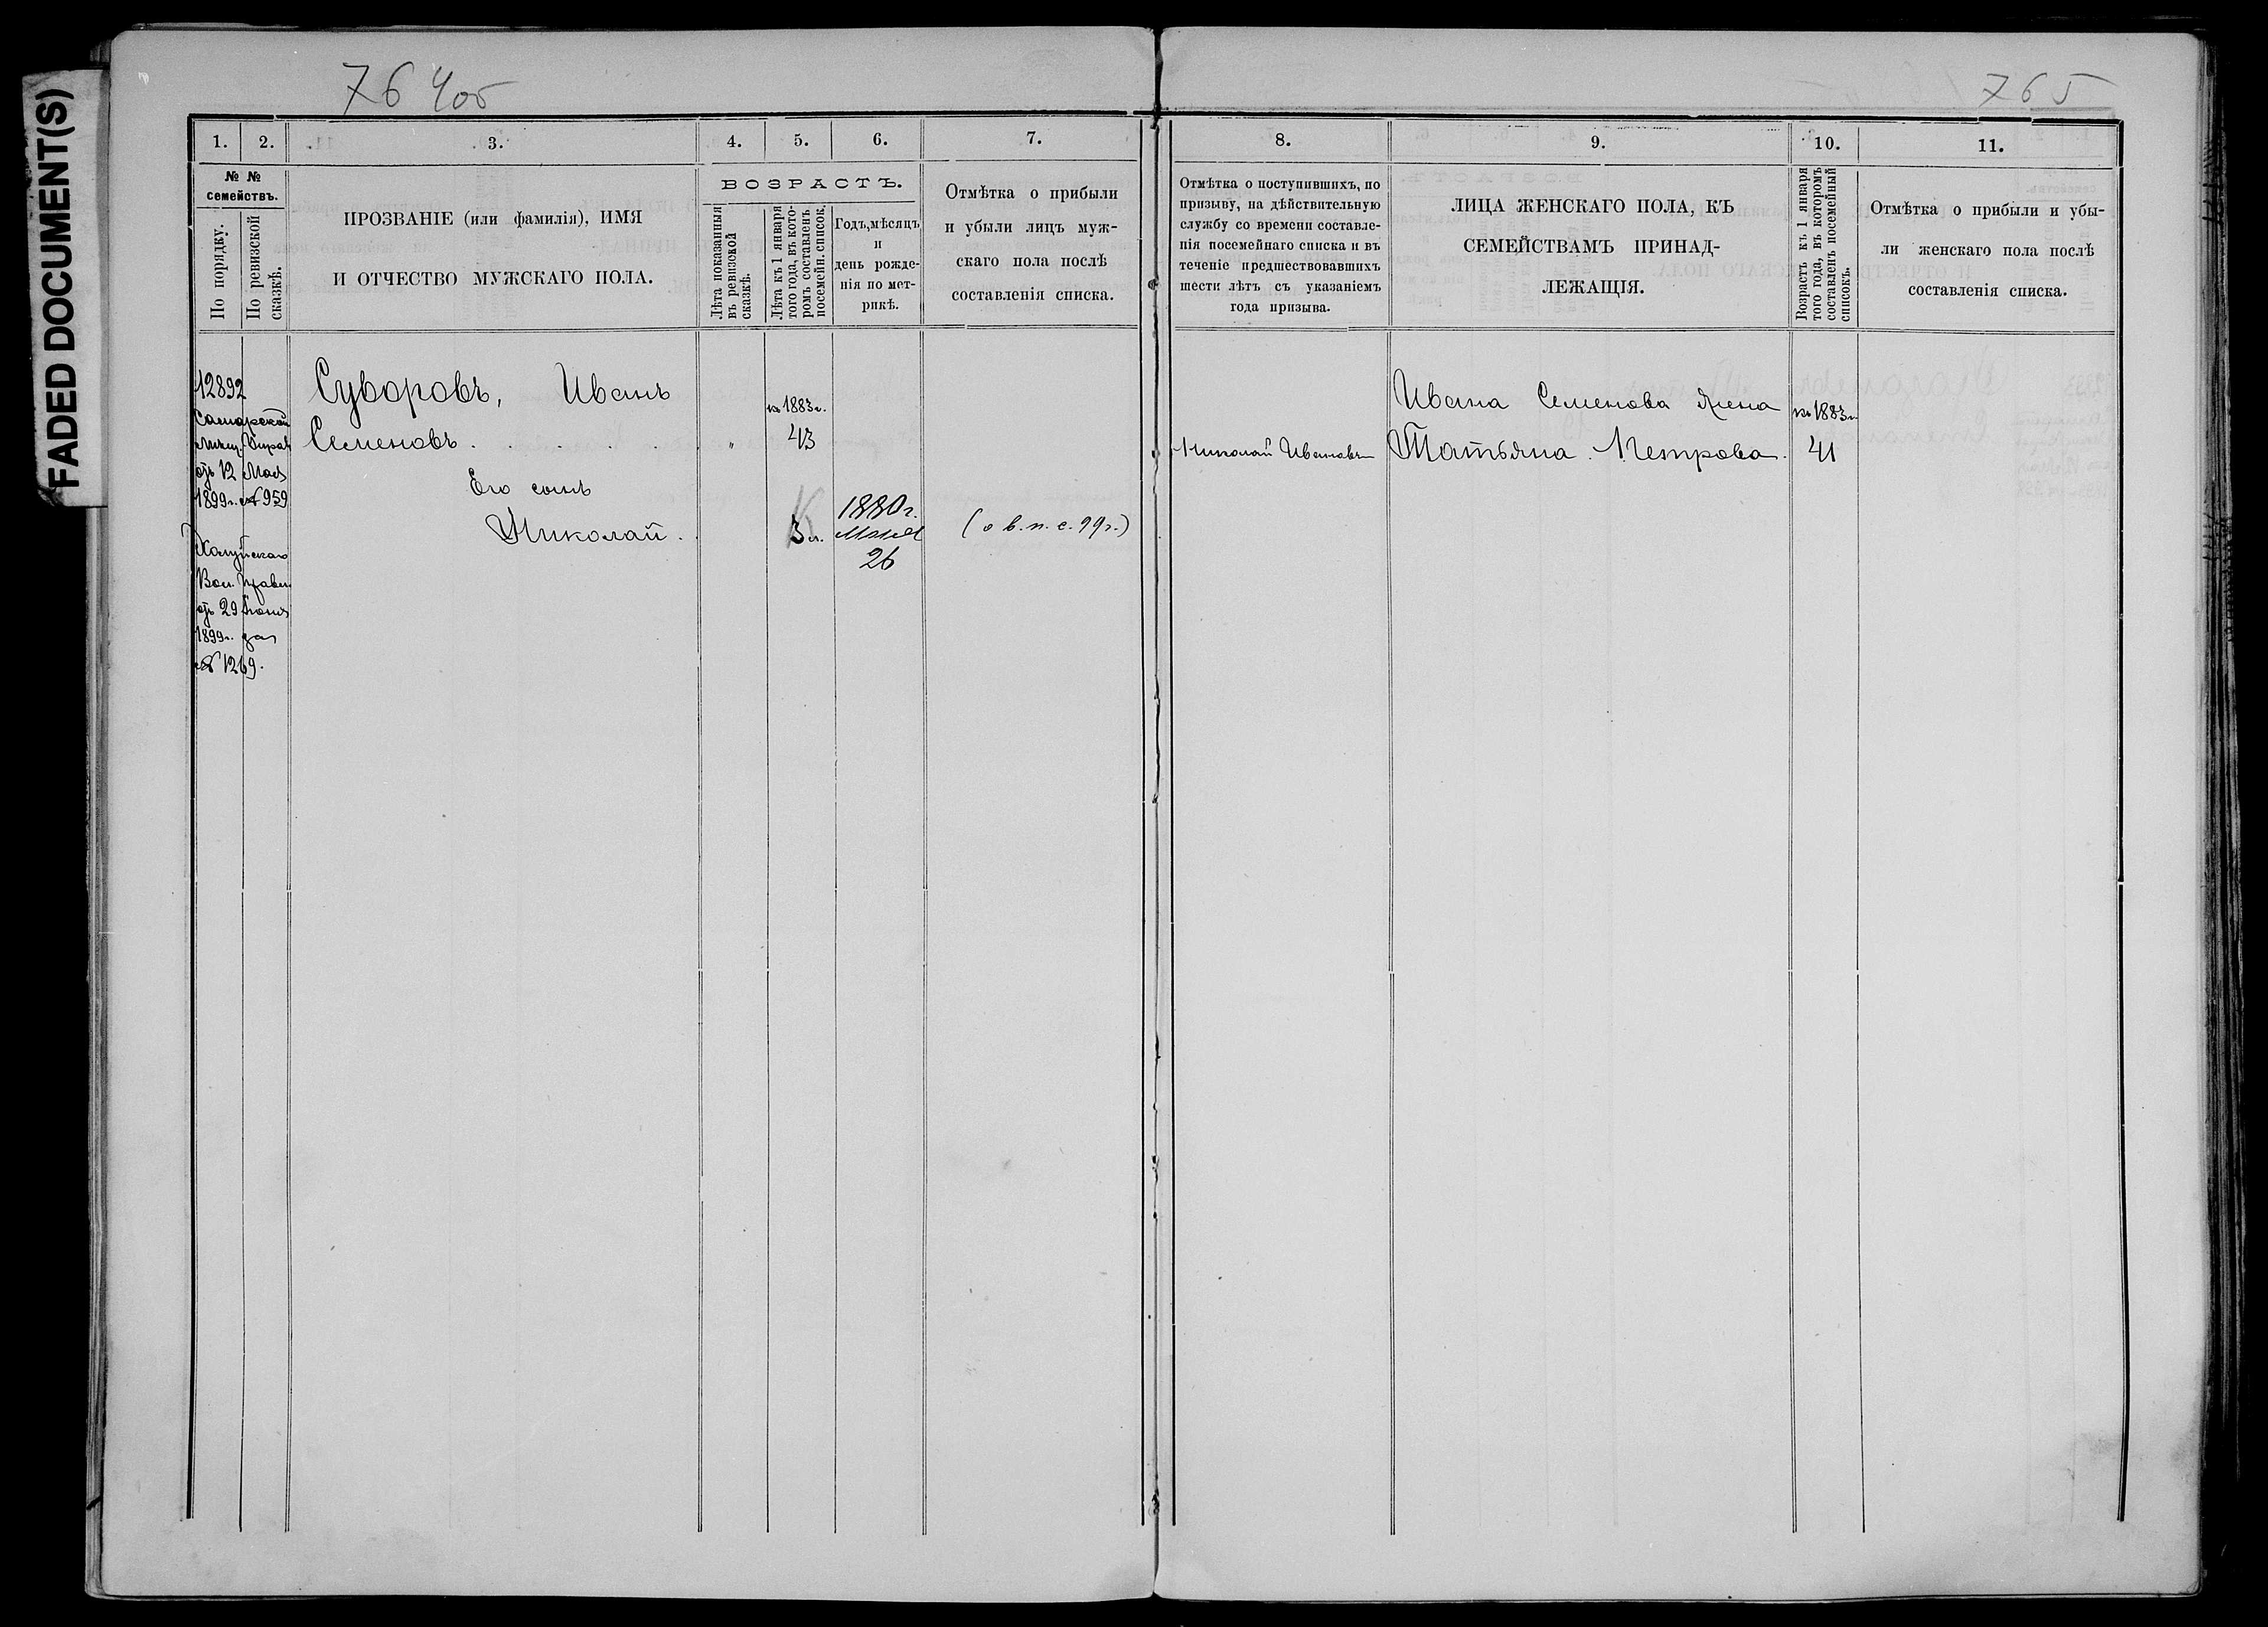 FADED DOCUMENT(S)
764об
765
1. 2. 3. 4. 5. 6. 7. 8. 9. 10. 11.
№ №
семействъ.
По порядку.
По ревизской
сказкѣ.
ПРОЗВАНІЕ (или фамилія), ИМЯ
И ОТЧЕСТВО МУЖСКАГО ПОЛА.
ВОЗРАСТЪ.
Лѣта показанныя
въ ревизской
сказкѣ.
Лѣта къ 1 января
того года, въ кото-
ромъ составленъ
посемейн. список.
Годъ, мѣсяцъ
и
день рожде-
нія по мет-
рикѣ.
Отмѣтка о прибыли
и убыли лицъ муж-
скаго пола послѣ
составленія списка.
Отмѣтка о поступившихъ, по
призыву, на дѣйствительную
службу со времени составле-
нія посемейнаго списка и въ
теченіе предшествовавшихъ
шести лѣтъ съ указаніемъ
года призыва.
ЛИЦА ЖЕНСКАГО ПОЛА, КЪ
СЕМЕЙСТВАМЪ ПРИНАД-
ЛЕЖАЩІЯ.
Возрастъ къ 1 января
того года, въ которомъ
составленъ посемейный
списокъ.
Отмѣтка о прибыли и убы-
ли женскаго пола послѣ
составленія списка.
12892
Самарской
Мѣщ. Управ
отъ 12 Мая
1899г. № 959
Вол. Правл
отъ 29 Іюня
1899г. за
№ 1269.
Суворовъ, Иванъ
Семеновъ . . . . . „
къ 1883г.
43
Его сынъ
Николай .
3 г.
1880г.
Мая
26
(о в. п. с. 99г.)
Николай Ивановъ
Ивана Семенова жена
Татьяна Петрова.
къ 1883г
41